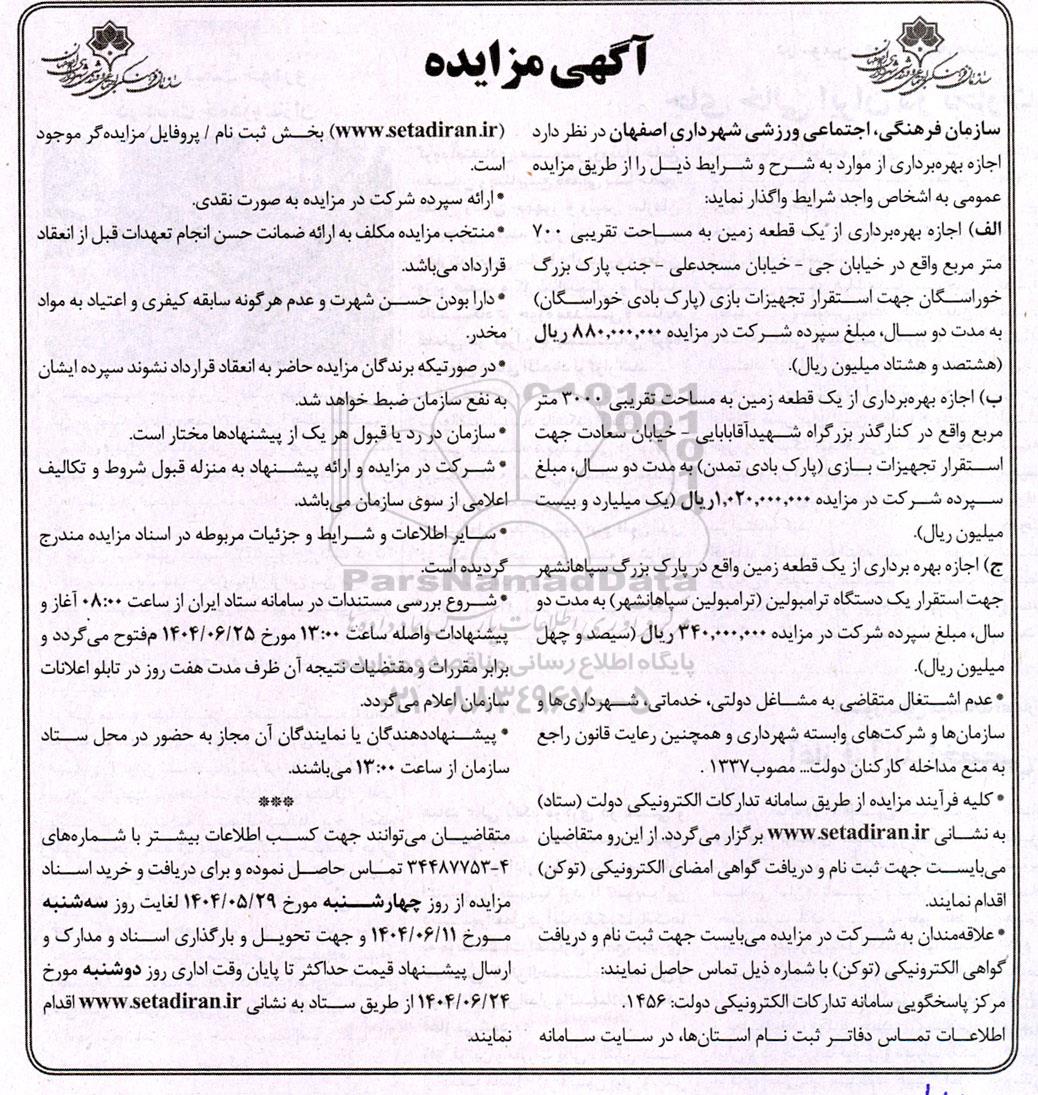 آگهی مزایده
سازمان فرهنگی، اجتماعی ورزشی شهرداری اصفهان در نظر دارد
اجازه بهره‌برداری از موارد به شرح و شرایط ذیل را از طریق مزایده
عمومی به اشخاص واجد شرایط واگذار نماید:
الف) اجازه بهره‌برداری از یک قطعه زمین به مساحت تقریبی ۷۰۰
متر مربع واقع در خیابان جی - خیابان مسجدعلی - جنب پارک بزرگ
خوراسگان جهت استقرار تجهیزات بازی (پارک بادی خوراسگان)
به مدت دو سال، مبلغ سپرده شرکت در مزایده ۸۸۰,۰۰۰,۰۰۰ ریال
(هشتصد و هشتاد میلیون ریال).
ب) اجازه بهره‌برداری از یک قطعه زمین به مساحت تقریبی ۳۰۰۰ متر
مربع واقع در کنارگذر بزرگراه شهیدآقابابایی - خیابان سعادت جهت
استقرار تجهیزات بازی (پارک بادی تمدن) به مدت دو سال، مبلغ
سپرده شرکت در مزایده ۱,۰۲۰,۰۰۰,۰۰۰ریال (یک میلیارد و بیست
میلیون ریال).
ج) اجازه بهره برداری از یک قطعه زمین واقع در پارک بزرگ سپاهانشهر
جهت استقرار یک دستگاه ترامبولین (ترامبولین سپاهانشهر) به مدت دو
سال، مبلغ سپرده شرکت در مزایده ۳۴۰,۰۰۰,۰۰۰ ریال (سیصد و چهل
میلیون ریال).
• عدم اشتغال متقاضی به مشاغل دولتی، خدماتی، شهرداری‌ها و
سازمان‌ها و شرکت‌های وابسته شهرداری و همچنین رعایت قانون راجع
به منع مداخله کارکنان دولت... مصوب۱۳۳۷ .
• کلیه فرآیند مزایده از طریق سامانه تدارکات الکترونیکی دولت (ستاد)
به نشانی www.setadiran.ir برگزار می‌گردد. از این‌رو متقاضیان
می‌بایست جهت ثبت نام و دریافت گواهی امضای الکترونیکی (توکن)
اقدام نمایند.
• علاقه‌مندان به شرکت در مزایده می‌بایست جهت ثبت نام و دریافت
گواهی الکترونیکی (توکن) با شماره ذیل تماس حاصل نمایند:
مرکز پاسخگویی سامانه تدارکات الکترونیکی دولت: ۱۴۵۶.
اطلاعات تماس دفاتر ثبت نام استان‌ها، در سایت سامانه
(www.setadiran.ir) بخش ثبت نام / پروفایل مزایده‌گر موجود
است.
• ارائه سپرده شرکت در مزایده به صورت نقدی.
• منتخب مزایده مکلف به ارائه ضمانت حسن انجام تعهدات قبل از انعقاد
قرارداد می‌باشد.
• دارا بودن حسن شهرت و عدم هرگونه سابقه کیفری و اعتیاد به مواد
مخدر.
• در صورتیکه برندگان مزایده حاضر به انعقاد قرارداد نشوند سپرده ایشان
به نفع سازمان ضبط خواهد شد.
• سازمان در رد یا قبول هر یک از پیشنهادها مختار است.
• شرکت در مزایده و ارائه پیشنهاد به منزله قبول شروط و تکالیف
اعلامی از سوی سازمان می‌باشد.
• سایر اطلاعات و شرایط و جزئیات مربوطه در اسناد مزایده مندرج
گردیده است.
• شروع بررسی مستندات در سامانه ستاد ایران از ساعت ۰۸:۰۰ آغاز و
پیشنهادات واصله ساعت ۱۳:۰۰ مورخ ۱۴۰۴/۰۶/۲۵ مفتوح می‌گردد و
برابر مقررات و مقتضیات نتیجه آن ظرف مدت هفت روز در تابلو اعلانات
سازمان اعلام می‌گردد.
• پیشنهاددهندگان یا نمایندگان آن مجاز به حضور در محل ستاد
سازمان از ساعت ۱۳:۰۰ می‌باشند.
***
متقاضیان می‌توانند جهت کسب اطلاعات بیشتر با شماره‌های
۳۴۴۸۷۷۵۳-۴ تماس حاصل نموده و برای دریافت و خرید اسناد
مزایده از روز چهارشنبه مورخ ۱۴۰۴/۰۵/۲۹ لغایت روز سه‌شنبه
مورخ ۱۴۰۴/۰۶/۱۱ و جهت تحویل و بارگذاری اسناد و مدارک و
ارسال پیشنهاد قیمت حداکثر تا پایان وقت اداری روز دوشنبه مورخ
۱۴۰۴/۰۶/۲۴ از طریق ستاد به نشانی www.setadiran.ir اقدام
نمایند.
ParsNamadData
پایگاه اطلاع رسانی مناقصه و مزایده